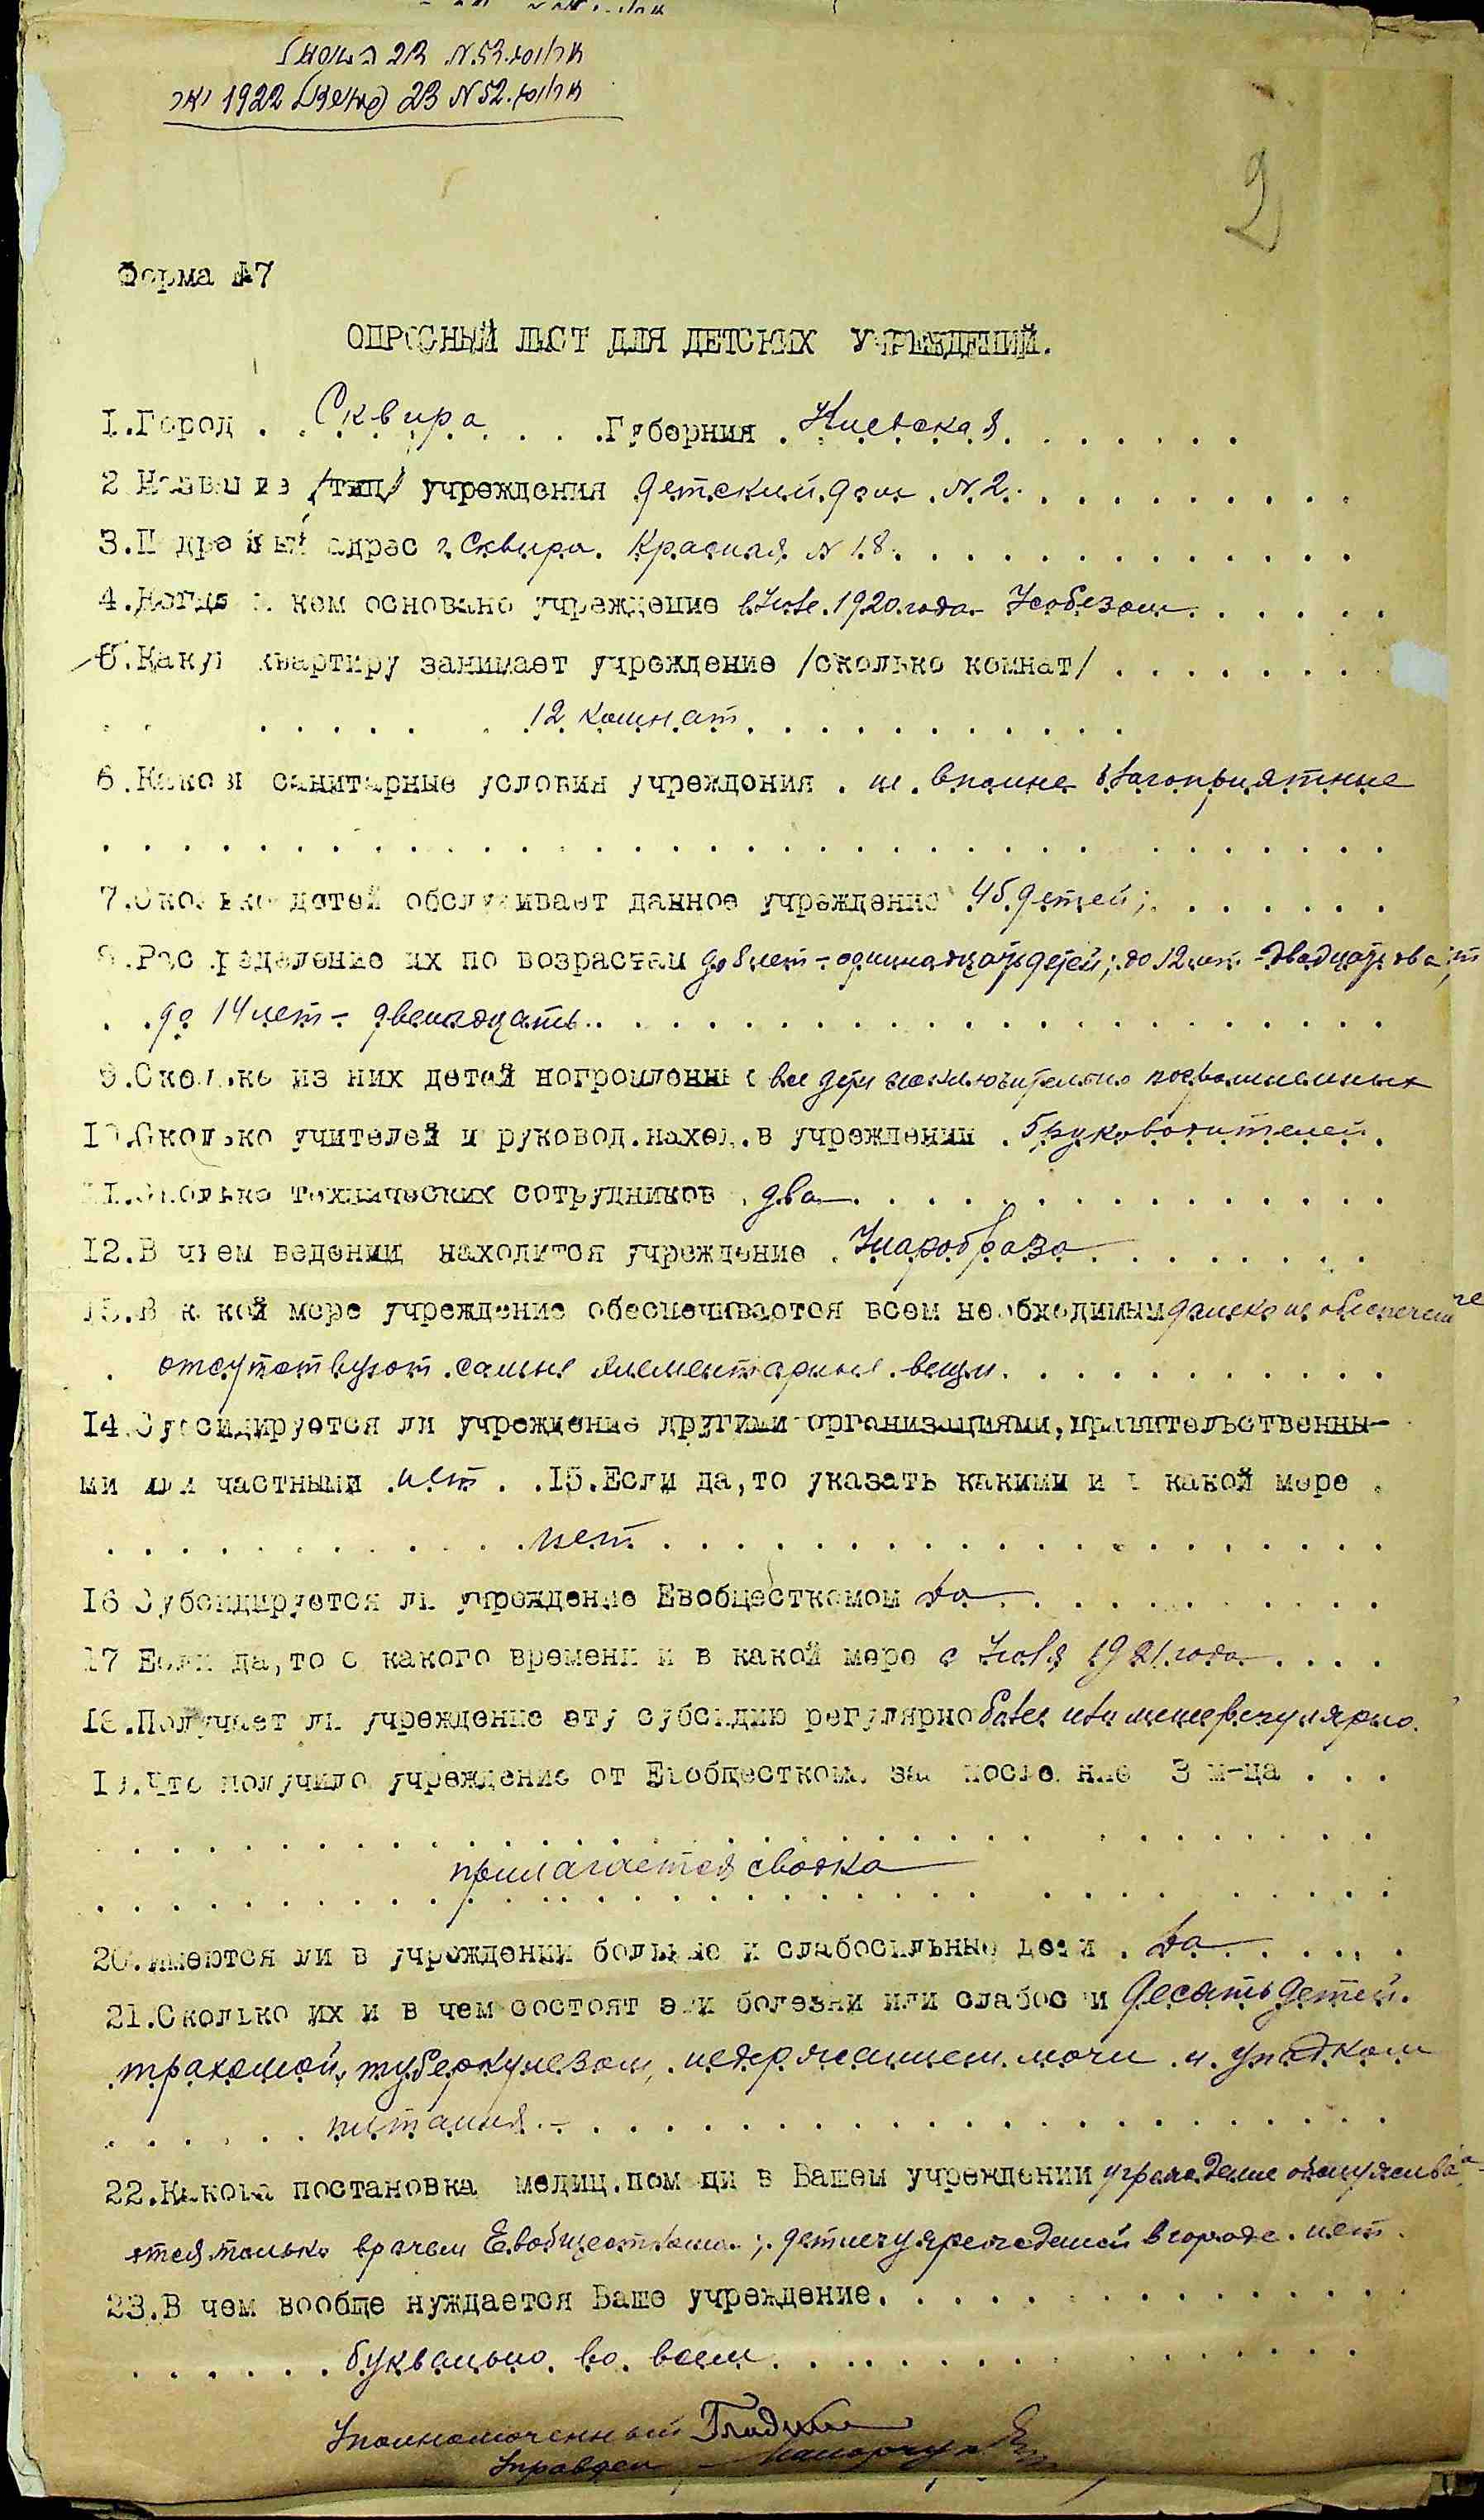 1922
Форма №7
ОПРОСНЫЙ ЛИСТ ДЛЯ ДЕТСКИХ УЧРЕЖДЕНИЙ.
1.Город . Сквира . . . .Губерния . Киевская . . . . . .
2 Название /тип/ учреждения Детский дом N 2. . . . . . . . . .
3.Подробный адрес г. Сквира. Красная N 18. . . . . . . . . . .
4.Когда и кем основано учреждение в Июле 1920 года - Усобезом . . . . .
5.Какую квартиру занимает учреждение /сколько комнат/ . . . . . . .
. . . . . . . . 12 комнат . . . . . . . . . .
6.Каковы санитарные условия учреждения . не вполне благоприятные
7.Сколько детей обслуживает данное учреждение 45 детей; . . . . . .
8.Распределение их по возрастам до 8 лет - одиннадцать детей; до 12 лет - двадцать два
. . до 14 лет - двенадцать . . . . . . . . . . . . . . .
9.Сколько из них детей погромленных все дети исключительно погромленных
10.Сколько учителей и руковод.наход.в учреждении . 5 руководителей.
11.Сколько технических сотрудников . два . . . . . . . . . .
12.В чьем ведении находится учреждение . Унаробраза . . . . . . .
13.В какой мере учреждение обеспечивается всем необходимым далеко не обеспечен
. отсутствуют самые элементарные вещи. . . . . . . . . . .
14.Субсидируется ли учреждение другими организациями,правительственны-
ми или частными .нет . .15.Если да,то указать какими и в какой мере .
. . . . . . . . нет . . . . . . . . . . . . .
16 Субсидируется ли учреждение Евобщесткомом да . . . . . . . .
17 Если да,то с какого времени и в какой мере с Июля 1921 года . . . .
18.Получает ли учреждение эту субсидию регулярно более или менее регулярно.
19.Что получило учреждение от Евобщесткома за последние 3 м-ца . . .
прилагается сводка
20.Имеются ли в учреждении больные и слабосильные дети . да . . . . .
21.Сколько их и в чем состоят эти болезни или слабости Десять детей.
трахомой, туберкулезом, недержанием мочи и упадком
. . . . . . питания. - . . . . . . . . . . . . . .
22.Какова постановка медиц.помощи в Вашем учреждении учреждение обслужива-
ется только врачем Евобщесткома; детлечучреждений в городе нет.
23.В чем вообще нуждается Ваше учреждение. . . . . . . . . .
. . . . . . буквально во всем. . . . . . . . . . .
Уполномоченный
Управдел